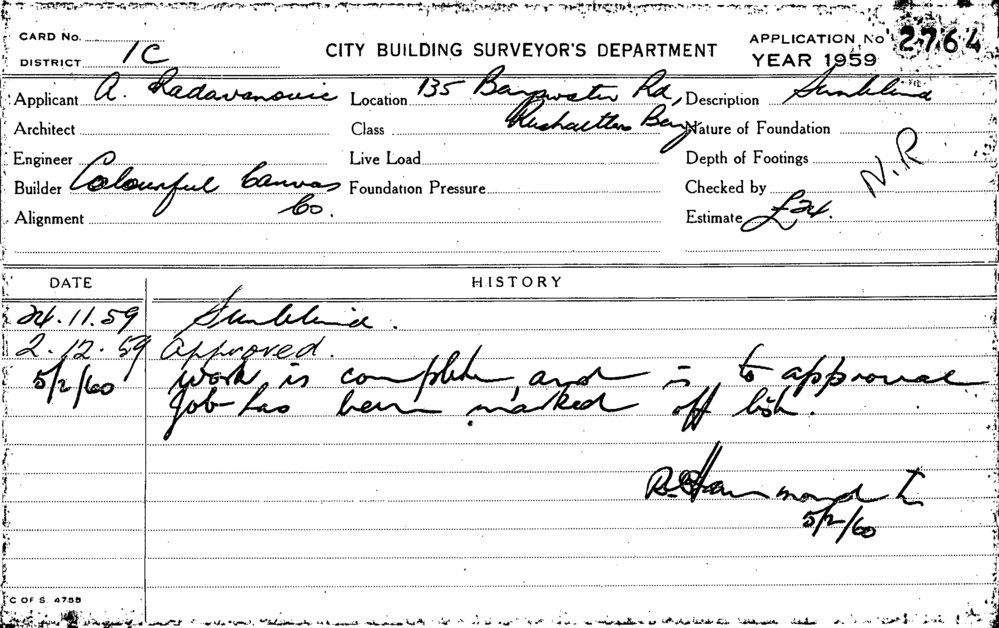 CARD No.
DISTRICT 1C
CITY BUILDING SURVEYOR'S DEPARTMENT
APPLICATION No 2764
YEAR 1959
Applicant A. Radavanovic Location 135 Bayswater Rd, Description Sunblind
Architect Class Rushcutters Bay Nature of Foundation
Engineer Live Load Depth of Footings
Builder Colourful Canvas Foundation Pressure Checked by N.R
Alignment Co. Estimate £24.
DATE HISTORY
24.11.59 Sunblind.
2.12.59 Approved.
5/2/60 Work is complete, and is to approval
Job has been marked off list.
Hammond
5/2/60
C OF S 4758